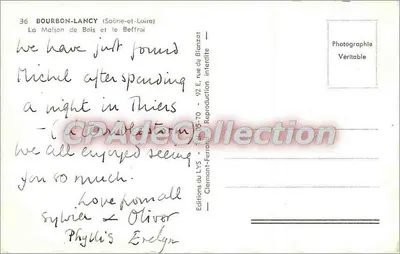 36 BOURBON-LANCY (Saône-et-Loire)
La Maison de Bois et le Beffroi
We have just found
Michel after spending
a night in Thiers
- (a terrible storm).
We all enjoyed seeing
you so much.
Love from all
Sylvia & Oliver
Phyllis Evelyn
Editions du LYS
92 E, rue de Blanzat
Clermont-Ferrand
Reproduction interdite
Photographie
Véritable
SPADE Collection